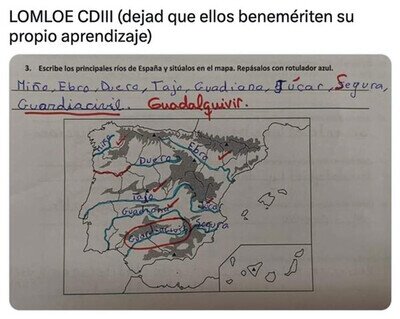 LOMLOE CDIII (dejad que ellos benemériten su
propio aprendizaje)
3. Escribe los principales ríos de España y sitúalos en el mapa. Repásalos con rotulador azul.
Miño, Ebro, Duero, Tajo, Guadiana, Júcar, Segura,
Guardiacivil. Guadalquivir.
Miño
Ebro
Duero
Tajo
Júcar
Guadiana
Segura
Guardiacivil